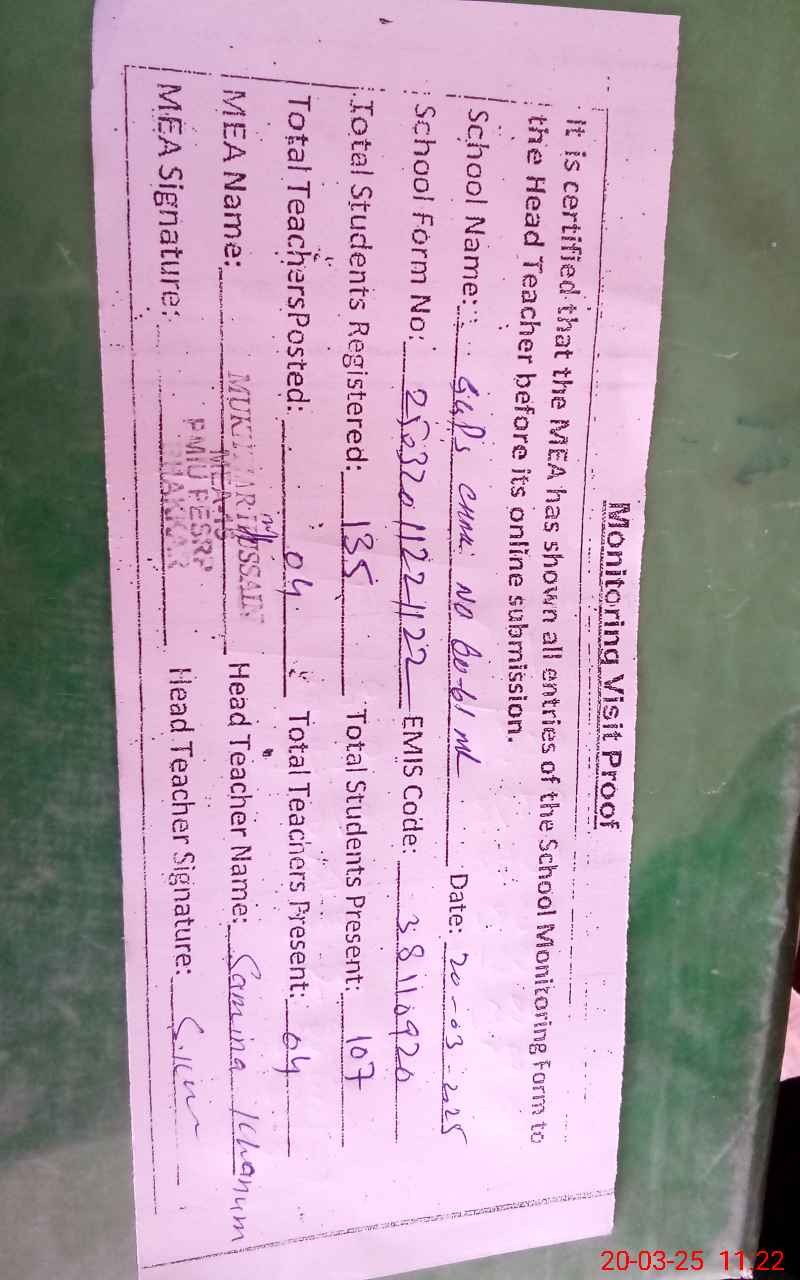 Monitoring Visit Proof
It is certified that the MEA has shown all entries of the School Monitoring Form to
the Head Teacher before its online submission.
School Name: GGPS Chak No 60-61 ML Date: 20-03-2025
School Form No: 25032011221122 EMIS Code: 38110920
Total Students Registered: 135 Total Students Present: 107
Total Teachers Posted: 04 Total Teachers Present: 04
MEA Name: MUKHTAR HUSSAIN Head Teacher Name: Samina Khanum
MEA Signature: PMIU PESRP Head Teacher Signature:
BHAKKAR
20-03-25 11.22